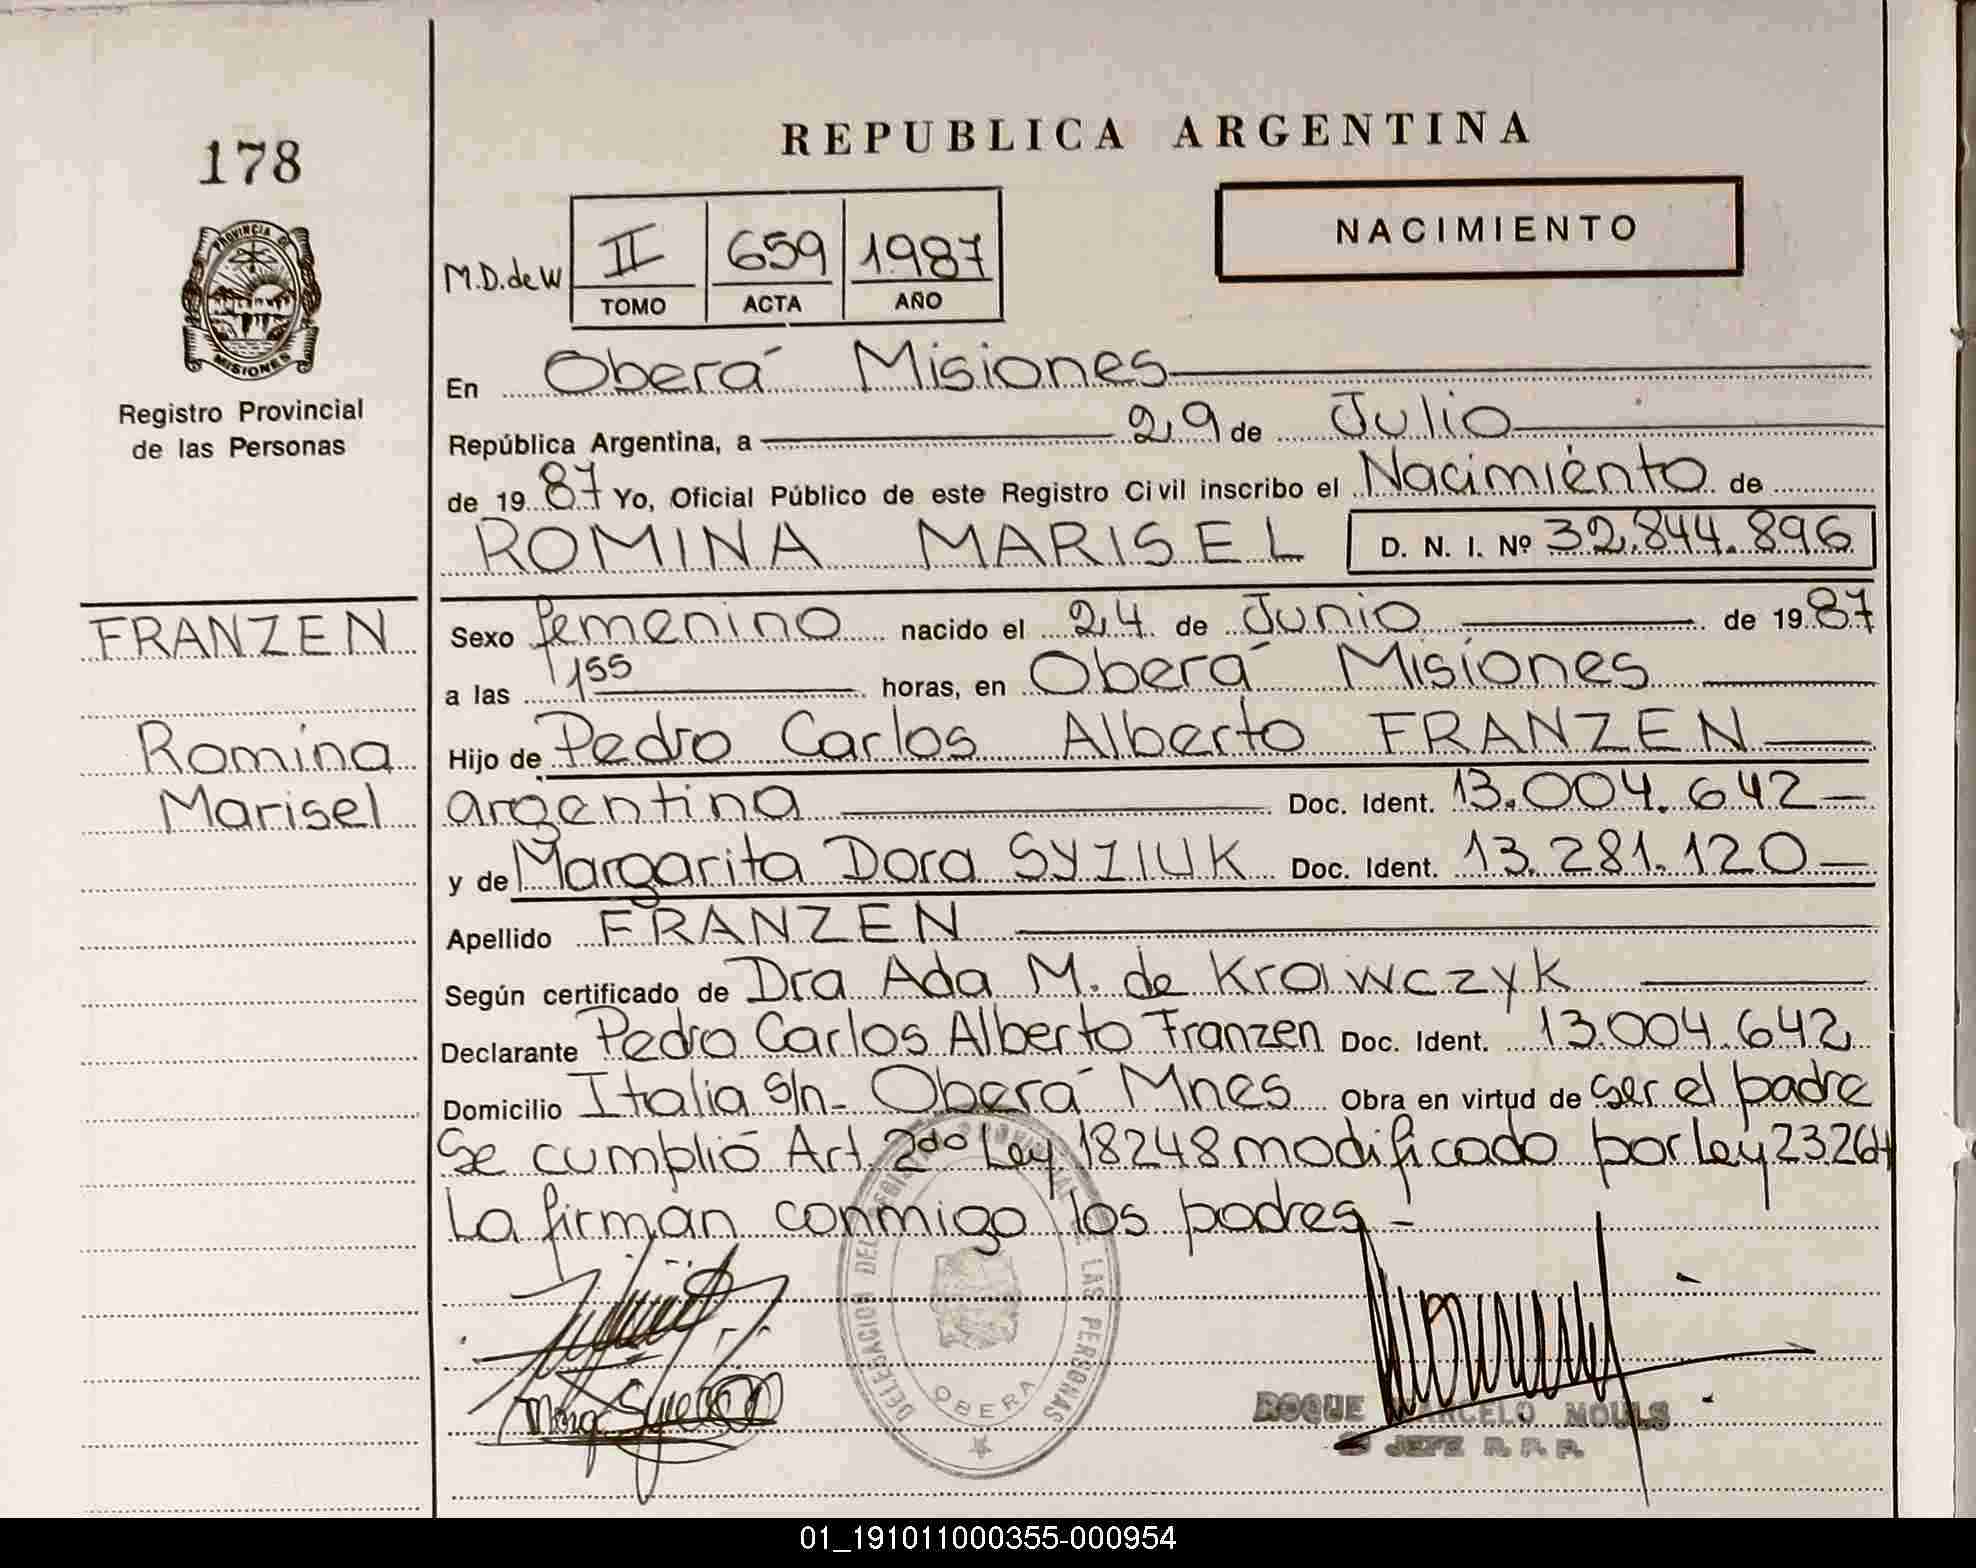 178
PROVINCIA DE
MISIONES
Registro Provincial
de las Personas
FRANZEN
Romina
Marisel
REPUBLICA ARGENTINA
NACIMIENTO
M.D. de W
II 659 1987
TOMO ACTA AÑO
En Oberá Misiones
República Argentina, a 29 de Julio
de 1987 Yo, Oficial Público de este Registro Civil inscribo el Nacimiento de
ROMINA MARISEL D. N. I. Nº 32.844.896
Sexo femenino nacido el 24 de Junio de 1987
a las 1,55 horas, en Oberá Misiones
Hijo de Pedro Carlos Alberto FRANZEN
argentina Doc. Ident. 13.004.642
y de Margarita Dora SYZIUK Doc. Ident. 13.281.120
Apellido FRANZEN
Según certificado de Dra Ada M. de Krawczyk
Declarante Pedro Carlos Alberto Franzen Doc. Ident. 13.004.642
Domicilio Italia s/n- Oberá Mnes Obra en virtud de ser el padre
Se cumplió Art. 2do Ley 18248 modificado por ley 23264
La firman conmigo los padres.-
DELEGACION DEL REGISTRO PROVINCIAL DE LAS PERSONAS
OBERA
ROQUE MARCELO MOULS
JEFE R. P. P.
01_191011000355-000954